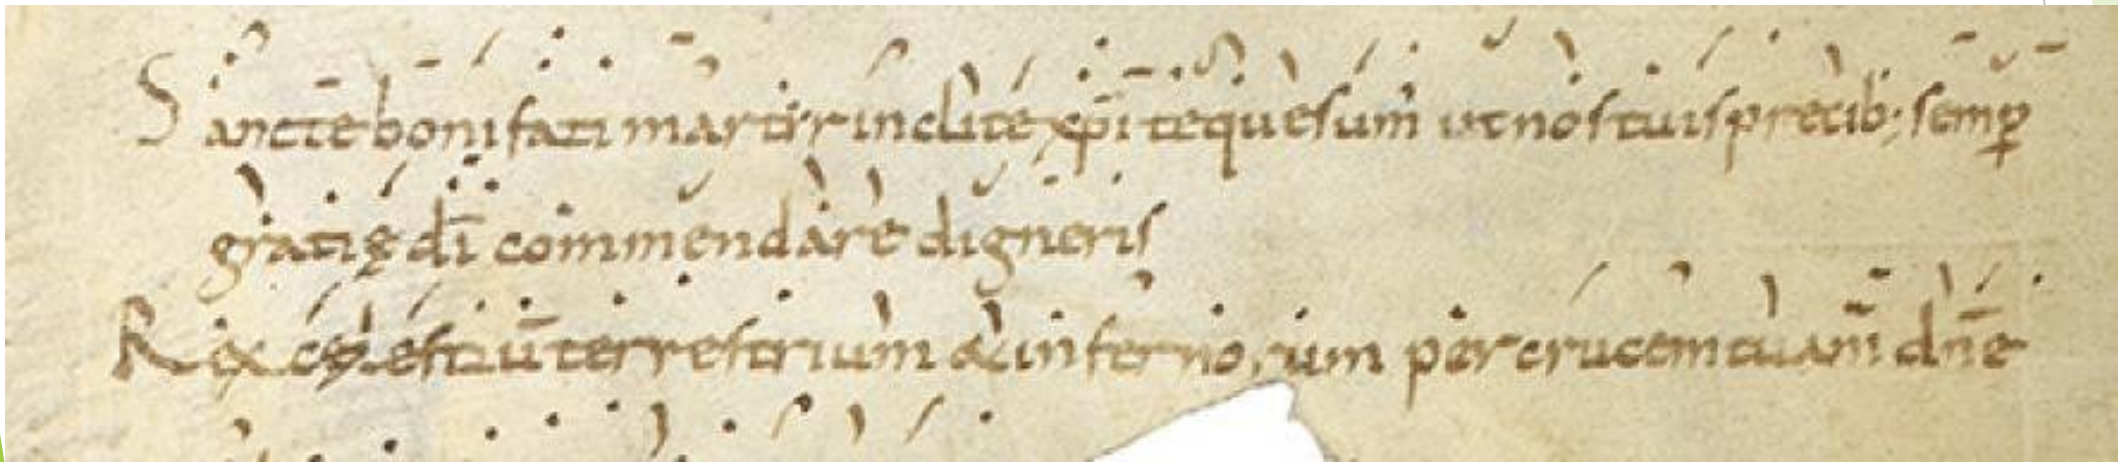 Sancte bonifati martir inclite xp̄i te quesum̄ ut nos tuis precib; semꝑ
gratię dī commendare digneris
Rex cęlestiū terrestrium & infernorum per crucem tuam dn̄e